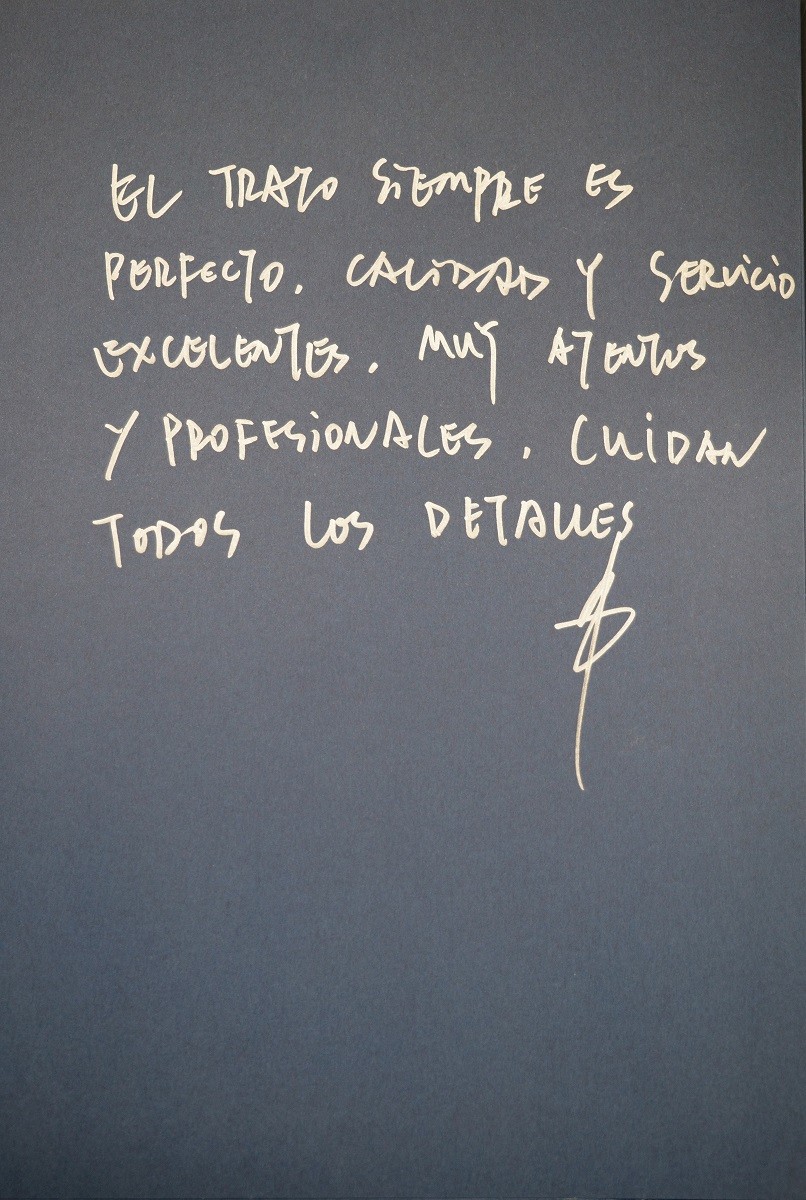 EL TRATO SIEMPRE ES
PERFECTO. CALIDAD Y SERVICIO
EXCELENTES. MUY ATENTOS
Y PROFESIONALES. CUIDAN
TODOS LOS DETALLES